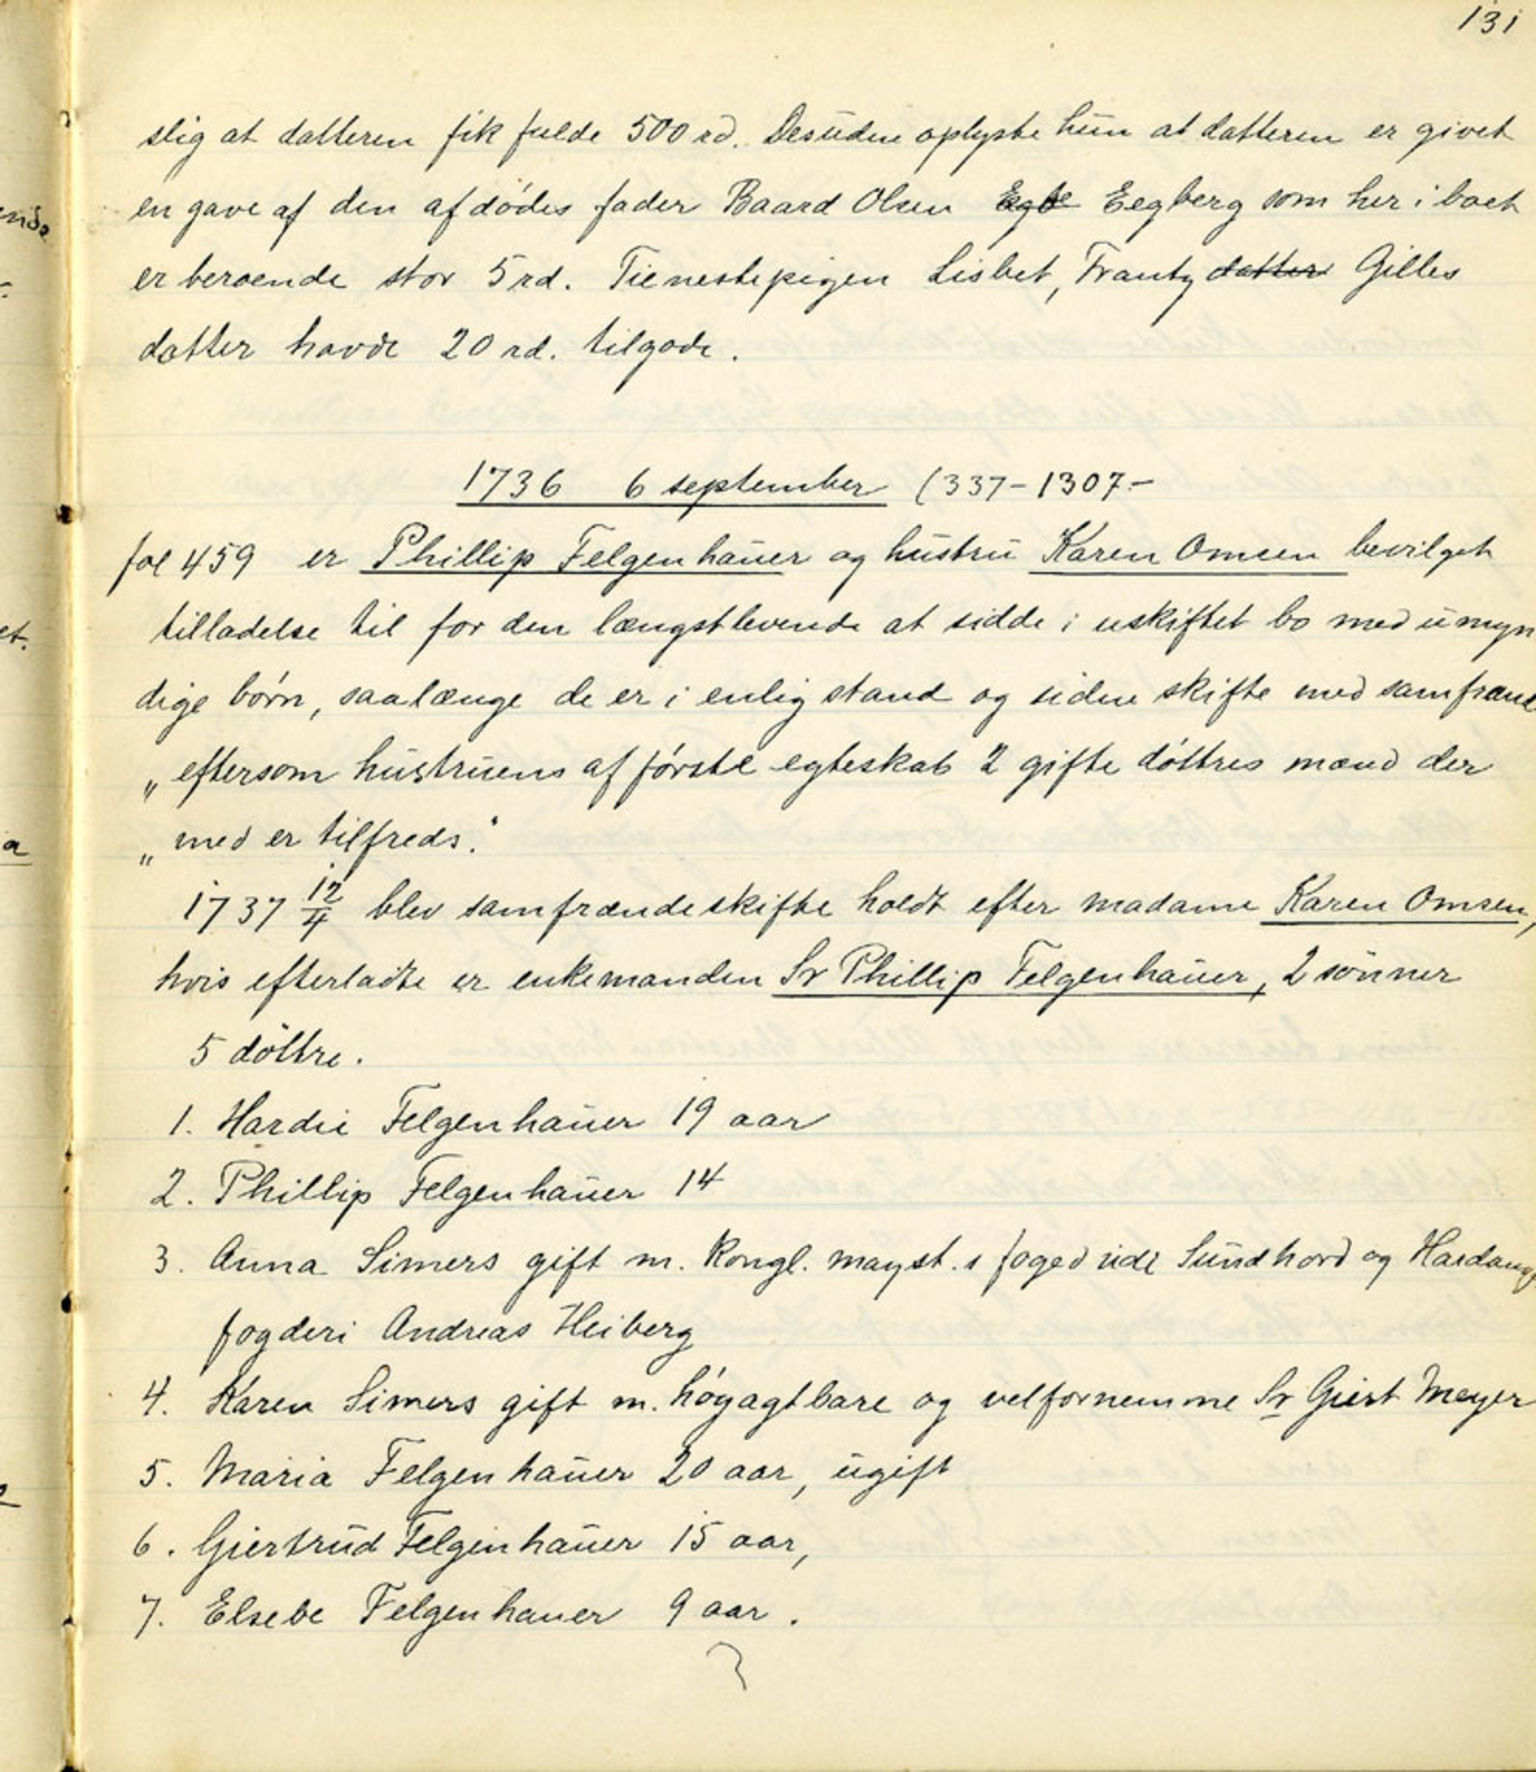 131
slig at datteren fik fulde 500 rd. Desuden oplyste hun at datteren er givet
en gave af den afdødes fader Baard Olsen Egbe Eegberg som her i boet
er beroende stor 5 rd. Tienestepigen Lisbet, Frantz datter Gilles
datter havde 20 rd. tilgode.
1736 6 september (337-1307-
fol 459 er Phillip Felgenhauer og hustru Karen Omsen bevilget
tilladelse til for den længstlevende at sidde i uskiftet bo med umyn
dige børn, saalænge de er i enlig stand og siden skifte med samfrænd
„ eftersom hustruens af første egteskab 2 gifte døttres mænd der
„ med er tilfreds."
1737 12/4 blev samfrændeskifte holdt efter madame Karen Omsen,
hvis efterladte er enkemanden Sr Phillip Felgenhauer, 2 sønner
5 døttre.
1. Hardie Felgenhauer 19 aar
2. Phillip Felgenhauer 14
3. Anna Simers gift m. Kongl. mayst. s foged udi Sundhord og Hardang
fogderi Andreas Heiberg
4. Karen Simers gift m. høyagtbare og velfornemme Sr Giert Meyer
5. Maria Felgenhauer 20 aar, ugift
6. Giertrud Felgenhauer 15 aar,
7. Elsebe Felgenhauer 9 aar.